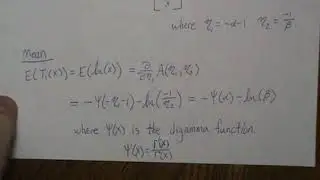 [ x ]
where η₁ = -α-1 η₂ = -1/β
Mean
E(T₁(x)) = E(ln(x)) = ∂/∂η₁ A(η₁,η₂)
= -Ψ(-η₁-1) - ln(-1/η₂) = -Ψ(α) - ln(β)
where Ψ(x) is the digamma function.
Ψ(x) = Γ'(x)/Γ(x)